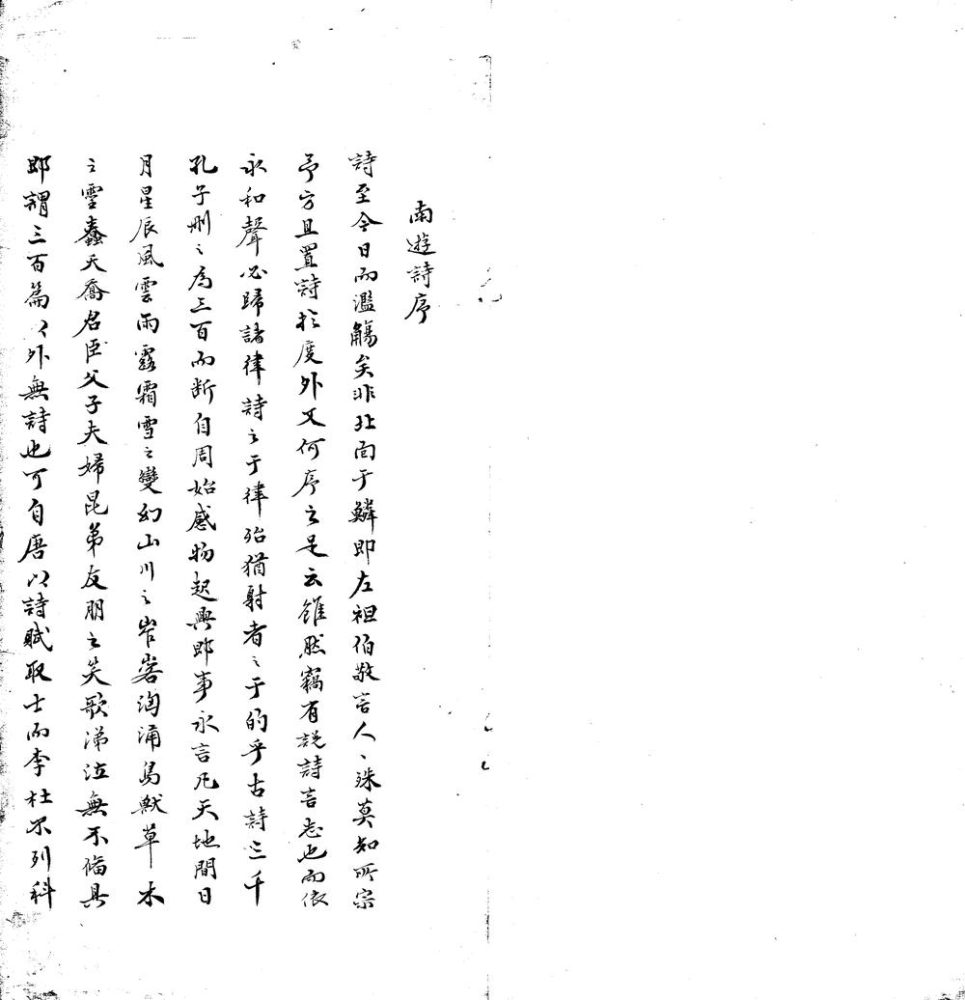 南遊詩序
詩至今日而濫觴矣非北面于鱗即左袒伯敬言人、殊莫知所宗
予方且置詩於度外又何序之足云雖然竊有説詩言志也而依
永和聲必歸諸律詩之于律殆猶射者之于的乎古詩三千
孔子刪之為三百而断自周始感物起興即事永言凡天地間日
月星辰風雲雨露霜雪之變幻山川之岝崿洶涌鳥獸草木
之靈蠢夭喬君臣父子夫婦昆弟友朋之笑歌涕泣無不備具
即謂三百篇之外無詩也可自唐以詩賦取士而李杜不列科